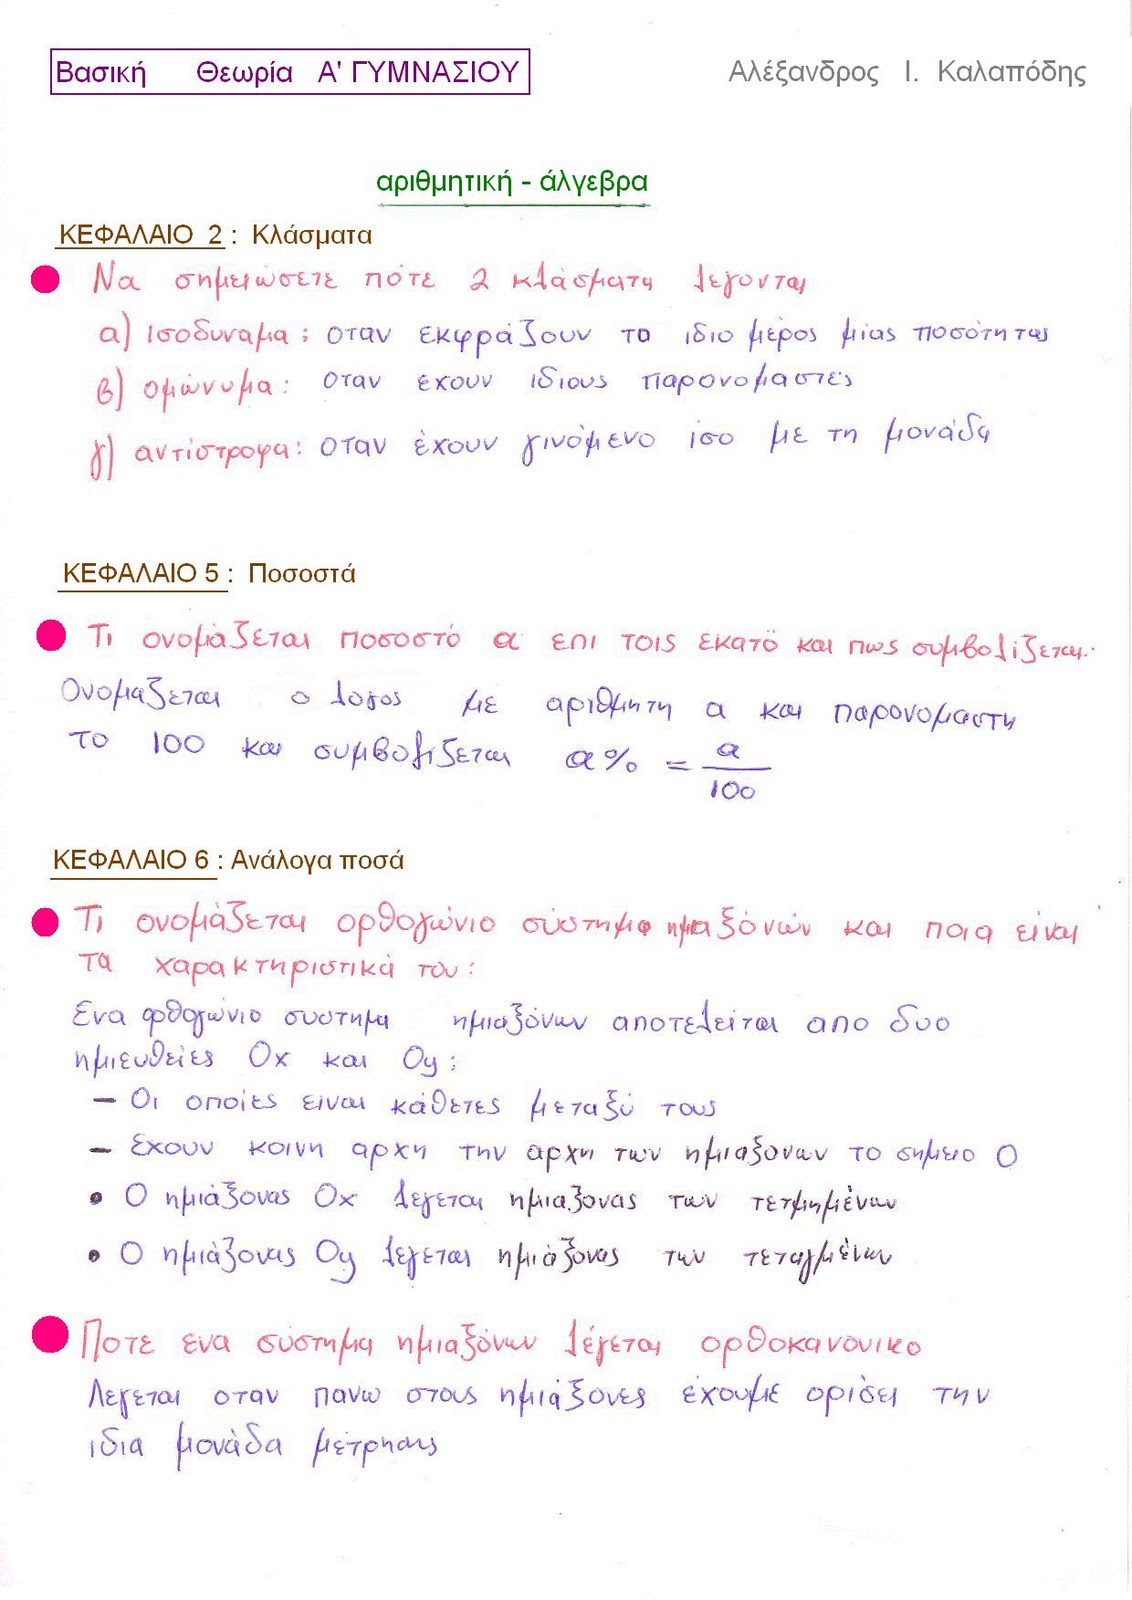 Βασική Θεωρία Α' ΓΥΜΝΑΣΙΟΥ
Αλέξανδρος Ι. Καλαπόδης
αριθμητική - άλγεβρα
ΚΕΦΑΛΑΙΟ 2 : Κλάσματα
Να σημειώσετε πότε 2 κλάσματα λεγονται
α) ισοδυναμα : οταν εκφράζουν το ιδιο μέρος μίας ποσότητας
β) ομώνυμα : οταν εχουν ιδιους παρονομαστες
γ) αντίστροφα : οταν έχουν γινόμενο ίσο με τη μονάδα
ΚΕΦΑΛΑΙΟ 5 : Ποσοστά
Τι ονομάζεται ποσοστό α επι τοις εκατό και πως συμβολίζεται.
Ονομαζεται ο λογος με αριθμητη α και παρονομαστη
το 100 και συμβολιζεται α% = α/100
ΚΕΦΑΛΑΙΟ 6 : Ανάλογα ποσά
Τι ονομάζεται ορθογώνιο σύστημα ημιαξόνων και ποια είναι
τα χαρακτηριστικά του :
Ενα ορθογώνιο συστημα ημιαξόνων αποτελείται απο δυο
ημιευθείες Οx και Οy :
– Οι οποίες ειναι κάθετες μεταξύ τους
– Εχουν κοινη αρχη την αρχη των ημιαξονων το σημειο Ο
• Ο ημιάξονας Οx λεγεται ημιαξονας των τετμημένων
• Ο ημιάξονας Οy λεγεται ημιάξονας των τεταγμένων
Ποτε ενα σύστημα ημιαξόνων λέγεται ορθοκανονικο
Λεγεται οταν πανω στους ημιάξονες έχουμε ορίσει την
ιδια μονάδα μέτρησης